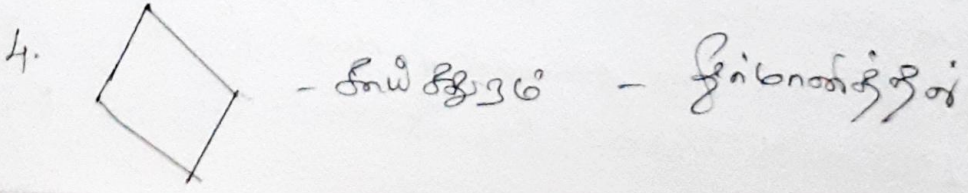 4. - சாய் சதுரம் - தீர்மானித்தல்